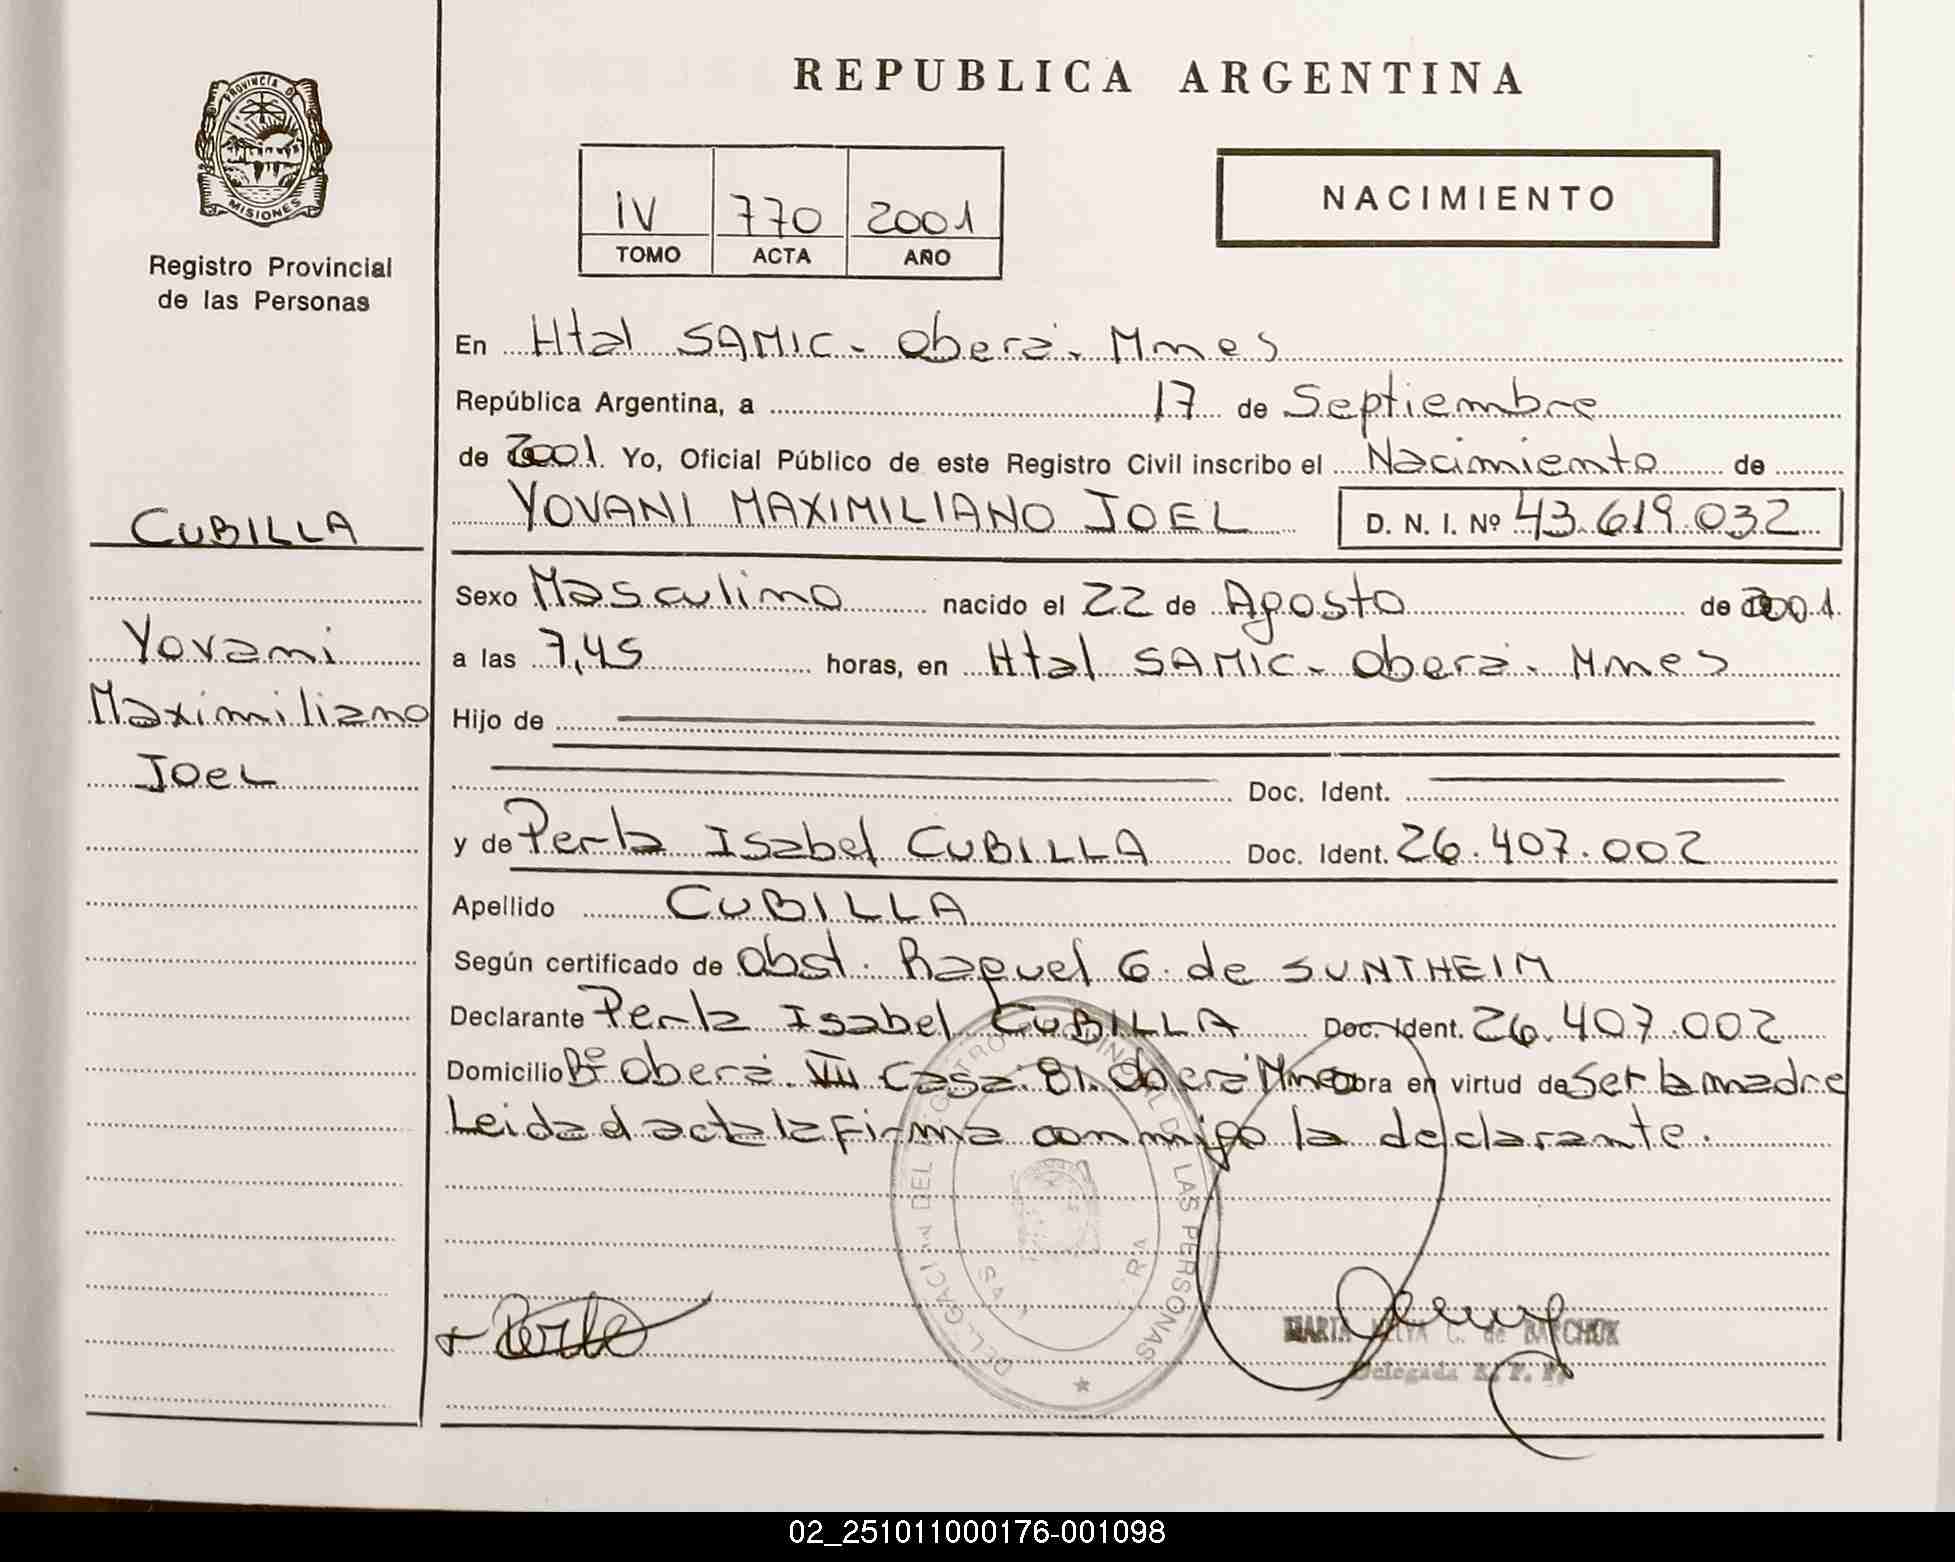 REPUBLICA ARGENTINA
PROVINCIA D
MISIONES
Registro Provincial
de las Personas
IV 770 2001
TOMO ACTA AÑO
NACIMIENTO
En Htal SAMIC - Oberá - Mnes
República Argentina, a 17 de Septiembre
de 2001. Yo, Oficial Público de este Registro Civil inscribo el Nacimiento de
YOVANI MAXIMILIANO JOEL D. N. I. Nº 43.619.032
CUBILLA
Yovani
Maximiliano
Joel
Sexo Masculino nacido el 22 de Agosto de 2001.
a las 7,45 horas, en Htal SAMIC - Oberá - Mnes
Hijo de
Doc. Ident.
y de Perla Isabel CUBILLA Doc. Ident. 26.407.002
Apellido CUBILLA
Según certificado de Obst. Raquel G. de SUNTHEIM
Declarante Perla Isabel CUBILLA Doc. Ident. 26.407.002
Domicilio Bº Oberá VII Casa 81. Oberá Mnes obra en virtud de Ser la madre
Leida el acta la firma conmigo la declarante.
DEL REGISTRO DE LAS PERSONAS
Perla
MARIA C. de BARCHUK
Delegada R. P. P.
02_251011000176-001098